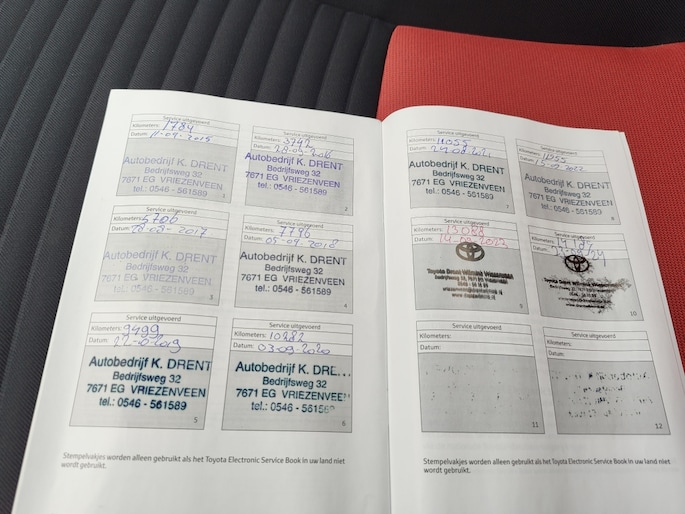 Service uitgevoerd
Kilometers: 1784
Datum: 11-09-2015
Autobedrijf K. DRENT
Bedrijfsweg 32
7671 EG VRIEZENVEEN
tel.: 0546 - 561589
1
Service uitgevoerd
Kilometers: 3792
Datum: 28-09-2016
Autobedrijf K. DRENT
Bedrijfsweg 32
7671 EG VRIEZENVEEN
tel.: 0546 - 561589
2
Service uitgevoerd
Kilometers: 5706
Datum: 28-08-2017
Autobedrijf K. DRENT
Bedrijfsweg 32
7671 EG VRIEZENVEEN
tel.: 0546 - 561589
3
Service uitgevoerd
Kilometers: 7796
Datum: 05-09-2018
Autobedrijf K. DRENT
Bedrijfsweg 32
7671 EG VRIEZENVEEN
tel.: 0546 - 561589
4
Service uitgevoerd
Kilometers: 9499
Datum: 22-10-2019
Autobedrijf K. DRENT
Bedrijfsweg 32
7671 EG VRIEZENVEEN
tel.: 0546 - 561589
5
Service uitgevoerd
Kilometers: 10282
Datum: 03-09-2020
Autobedrijf K. DRE
Bedrijfsweg 32
7671 EG VRIEZENVEEN
tel.: 0546 - 561589
6
Stempelvakjes worden alleen gebruikt als het Toyota Electronic Service Book in uw land niet
wordt gebruikt.
Service uitgevoerd
Kilometers: 11055
Datum:
Autobedrijf K. DRENT
Bedrijfsweg 32
7671 EG VRIEZENVEEN
tel.: 0546 - 561589
7
Service uitgevoerd
Kilometers:
Datum:
Autobedrijf K. DRENT
Bedrijfsweg 32
7671 EG VRIEZENVEEN
tel.: 0546 - 561589
8
Service uitgevoerd
Kilometers: 13088
Datum: 14-09-2023
Toyota
9
Service uitgevoerd
Kilometers:
Datum:
Toyota
10
Service uitgevoerd
Kilometers:
Datum:
11
Service uitgevoerd
Kilometers:
Datum:
12
Stempelvakjes worden alleen gebruikt als het Toyota Electronic Service Book in uw land niet
wordt gebruikt.